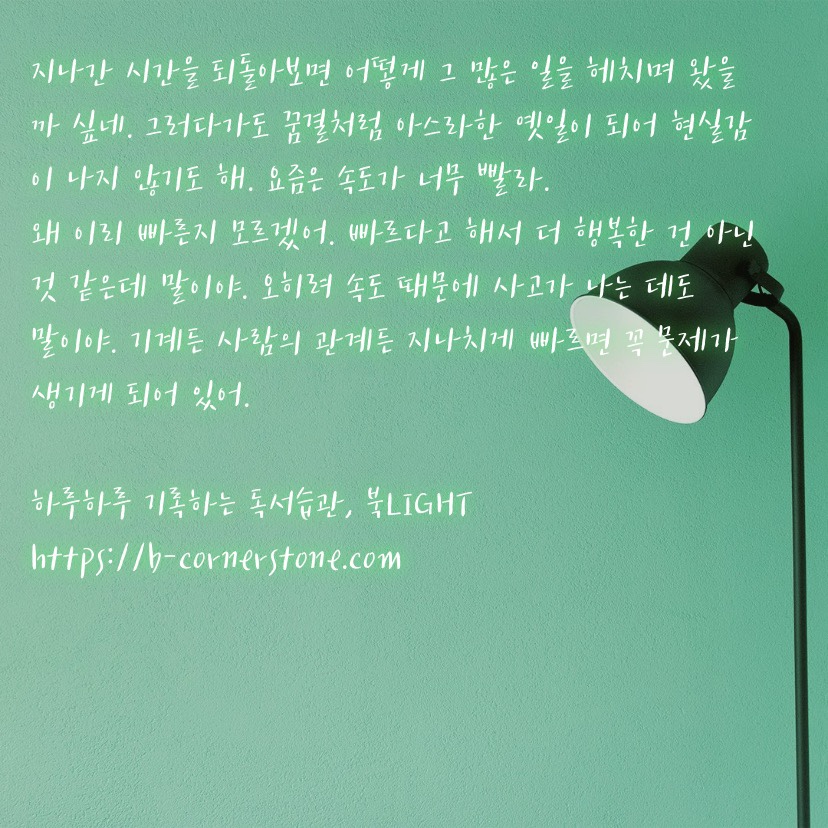 지나간 시간을 되돌아보면 어떻게 그 많은 일을 헤치며 왔을
까 싶네. 그러다가도 꿈결처럼 아스라한 옛일이 되어 현실감
이 나지 않기도 해. 요즘은 속도가 너무 빨라.
왜 이리 빠른지 모르겠어. 빠르다고 해서 더 행복한 건 아닌
것 같은데 말이야. 오히려 속도 때문에 사고가 나는 데도
말이야. 기계든 사람의 관계든 지나치게 빠르면 꼭 문제가
생기게 되어 있어.
하루하루 기록하는 독서습관, 북LIGHT
https://b-cornerstone.com